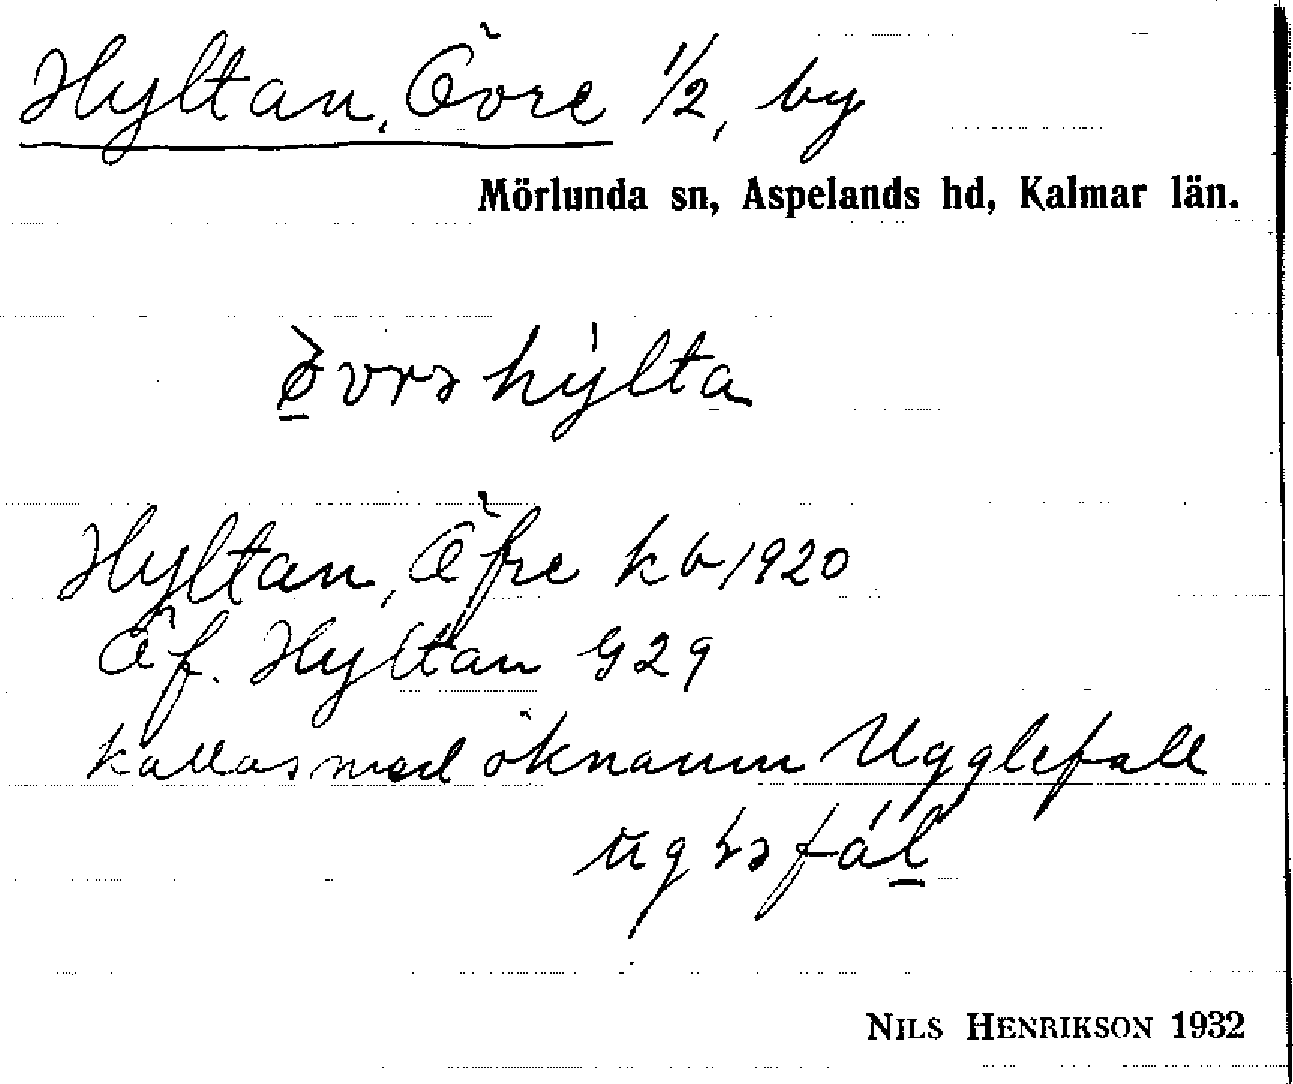 Hyltan, Övre 1/2, by
Mörlunda sn, Aspelands hd, Kalmar län.
Hyltan, Öfre kb 1920
Öf. Hyltan G29
kallas med öknamn Ugglefall
NILS HENRIKSON 1932